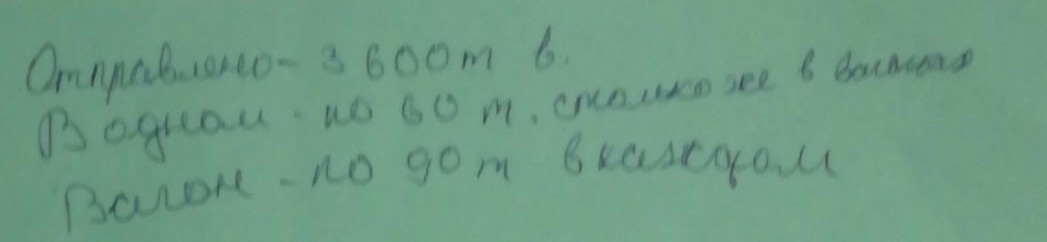 Отправлено - 3 600 т в.
В одном - по 60 т. столько же в вагонах
Вагон - по 90 т в каждом